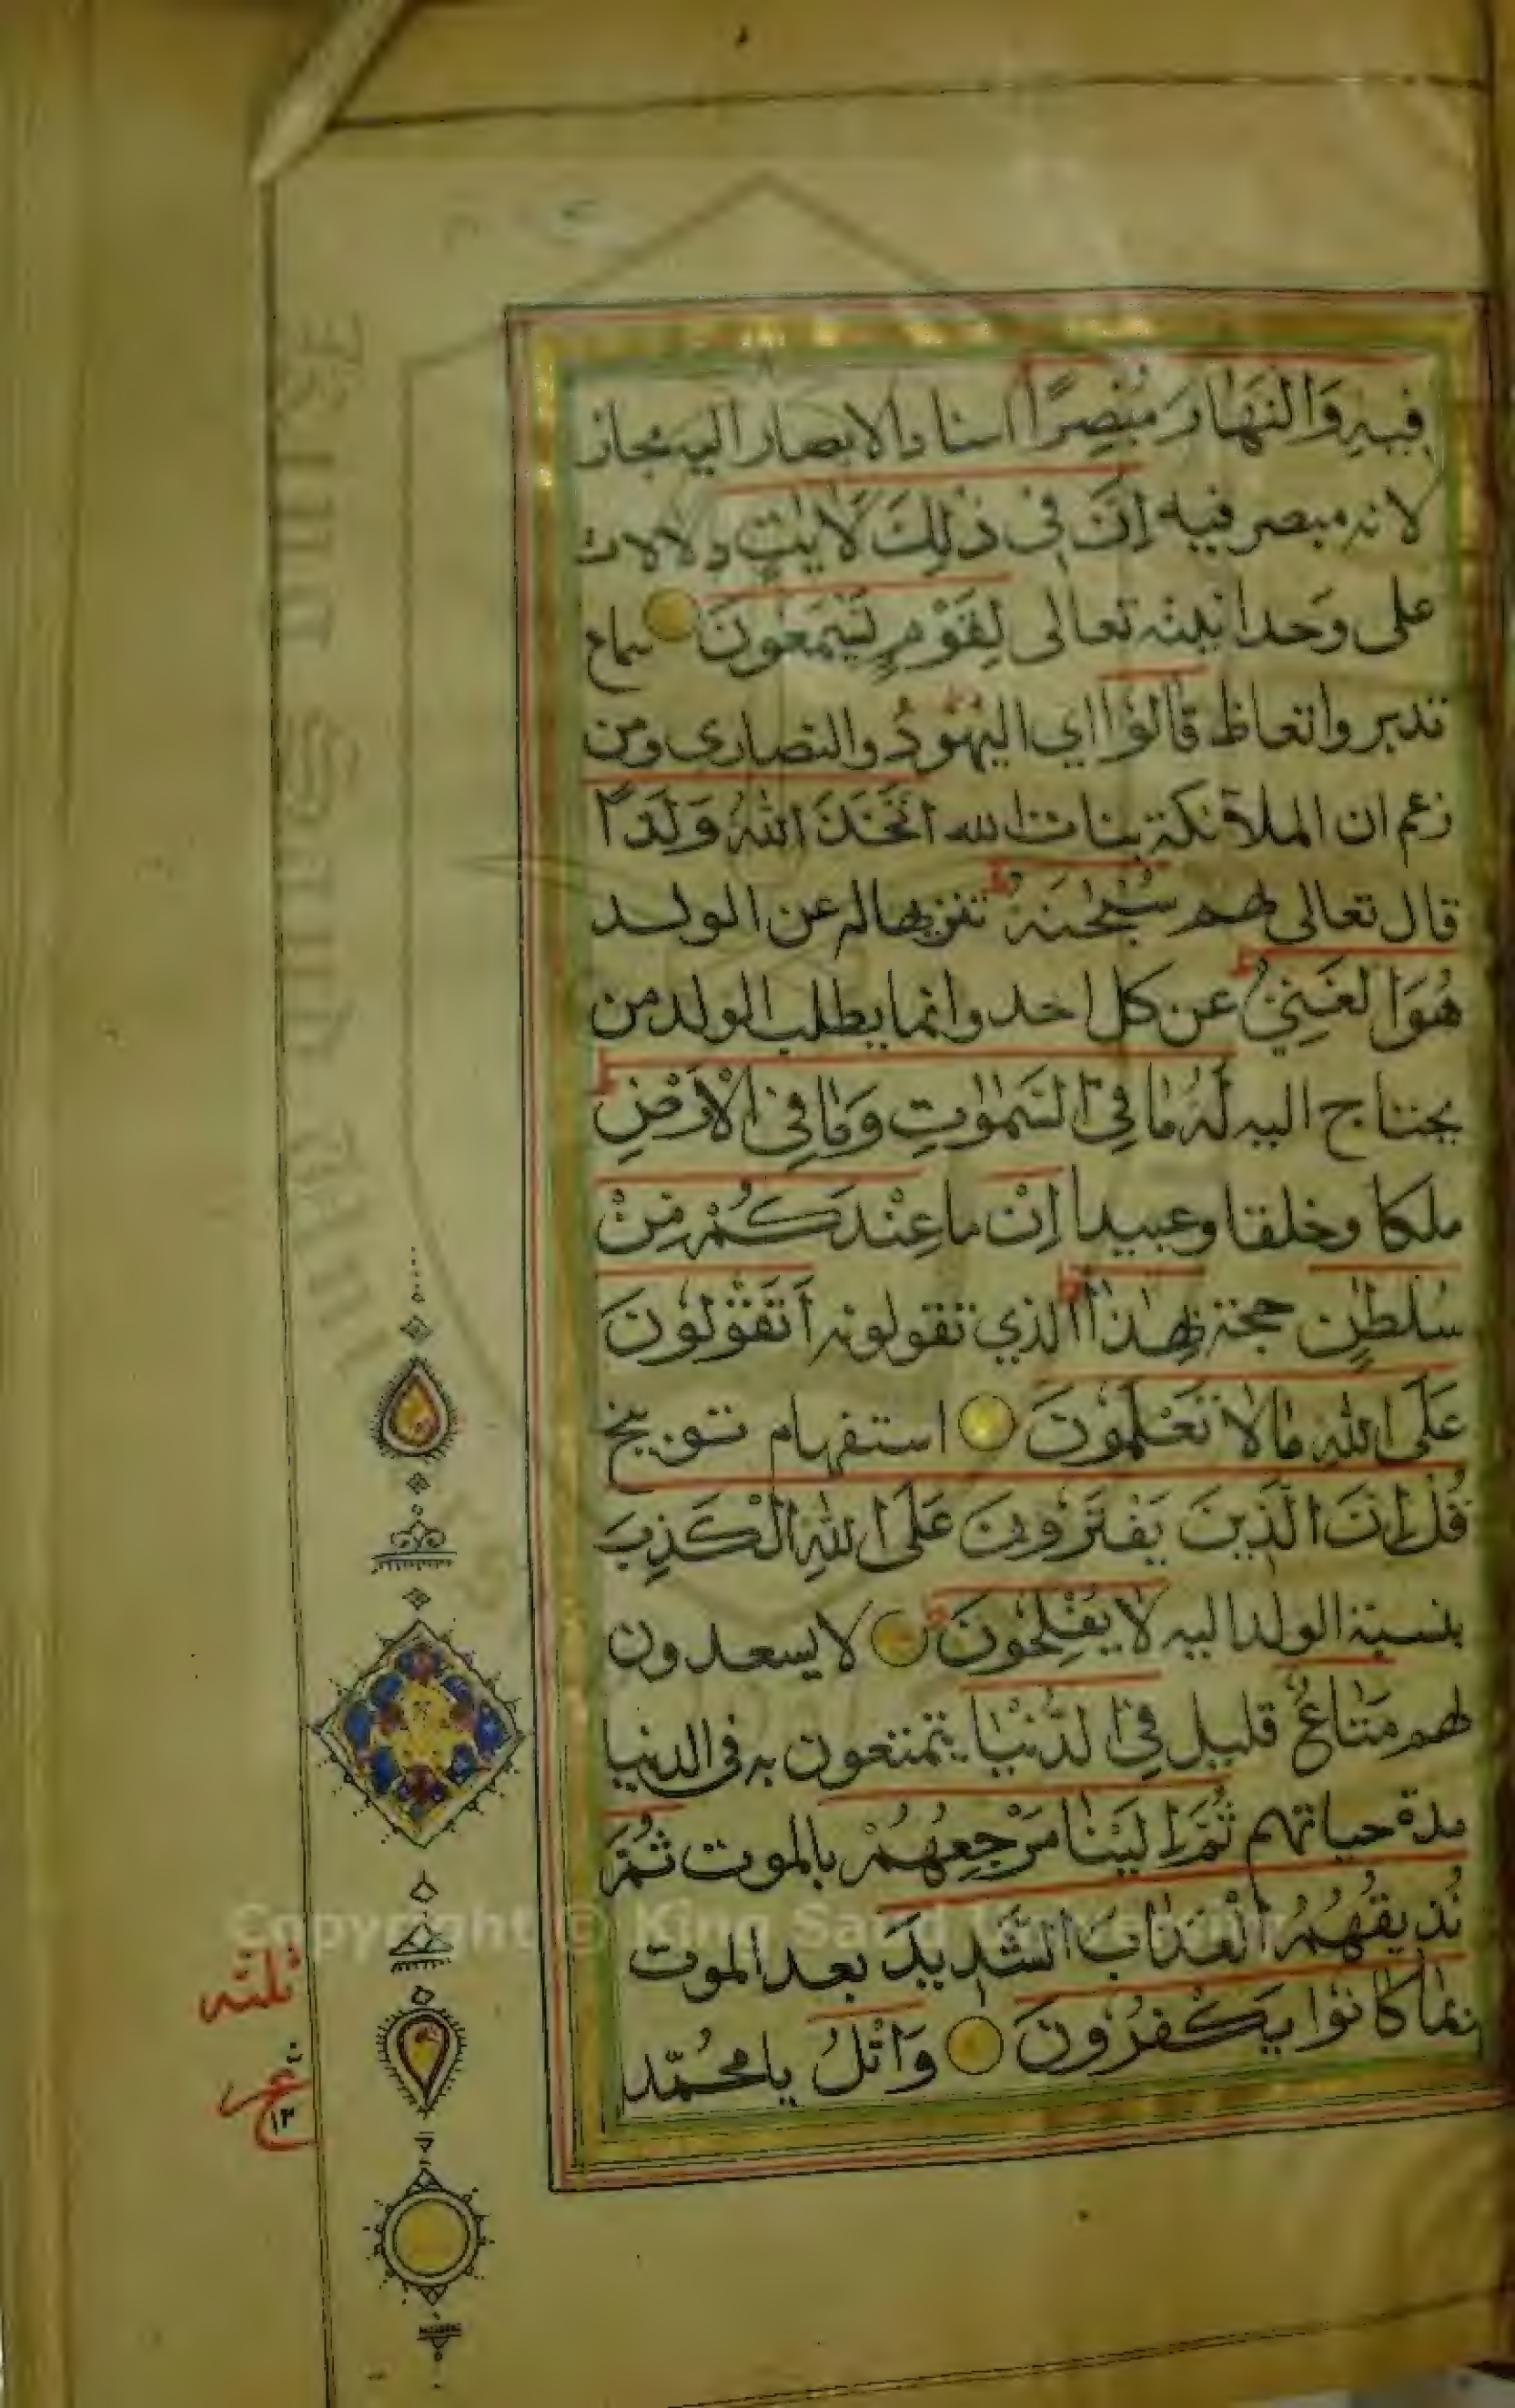 فِيهِ وَالنَّهَارَ مُبْصِرًا اسناد الابصار اليه مجاز
لانه مبصر فيه اِنَّ فِى ذٰلِكَ لَاٰيٰتٍ دلالات
على وحدانيته تعالى لِقَوْمٍ يَسْمَعُونَ سماع
تدبر واتعاظ قَالُوا اي اليهود والنصارى ومن
زعم ان الملآئكة بنات الله اتَّخَذَ اللّٰهُ وَلَدًا
قال تعالى لهم سُبْحٰنَهُ تنزيها له عن الولد
هُوَ الْغَنِيُّ عن كل احد وانما يطلب الولد من
يحتاج اليه لَهُ مَا فِي السَّمٰوٰتِ وَمَا فِي الْاَرْضِ
ملكا وخلقا وعبيدا اِنْ مَا عِنْدَكُمْ مِنْ
سُلْطٰنٍ حجة بِهٰذَا الذي تقولونه اَتَقُولُونَ
عَلَى اللّٰهِ مَا لَا تَعْلَمُونَ استفهام توبيخ
قُلْ اِنَّ الَّذِينَ يَفْتَرُونَ عَلَى اللّٰهِ الْكَذِبَ
بنسبة الولد اليه لَا يُفْلِحُونَ لا يسعدون
لهم مَتَاعٌ قليل فِي الدُّنْيَا يتمتعون به فى الدنيا
مدة حياتهم ثُمَّ اِلَيْنَا مَرْجِعُهُمْ بالموت ثُمَّ
نُذِيقُهُمُ الْعَذَابَ الشَّدِيدَ بعد الموت
بِمَا كَانُوا يَكْفُرُونَ وَاتْلُ يا محمّد
ثلثه
١٣
Copyright © King Saud University